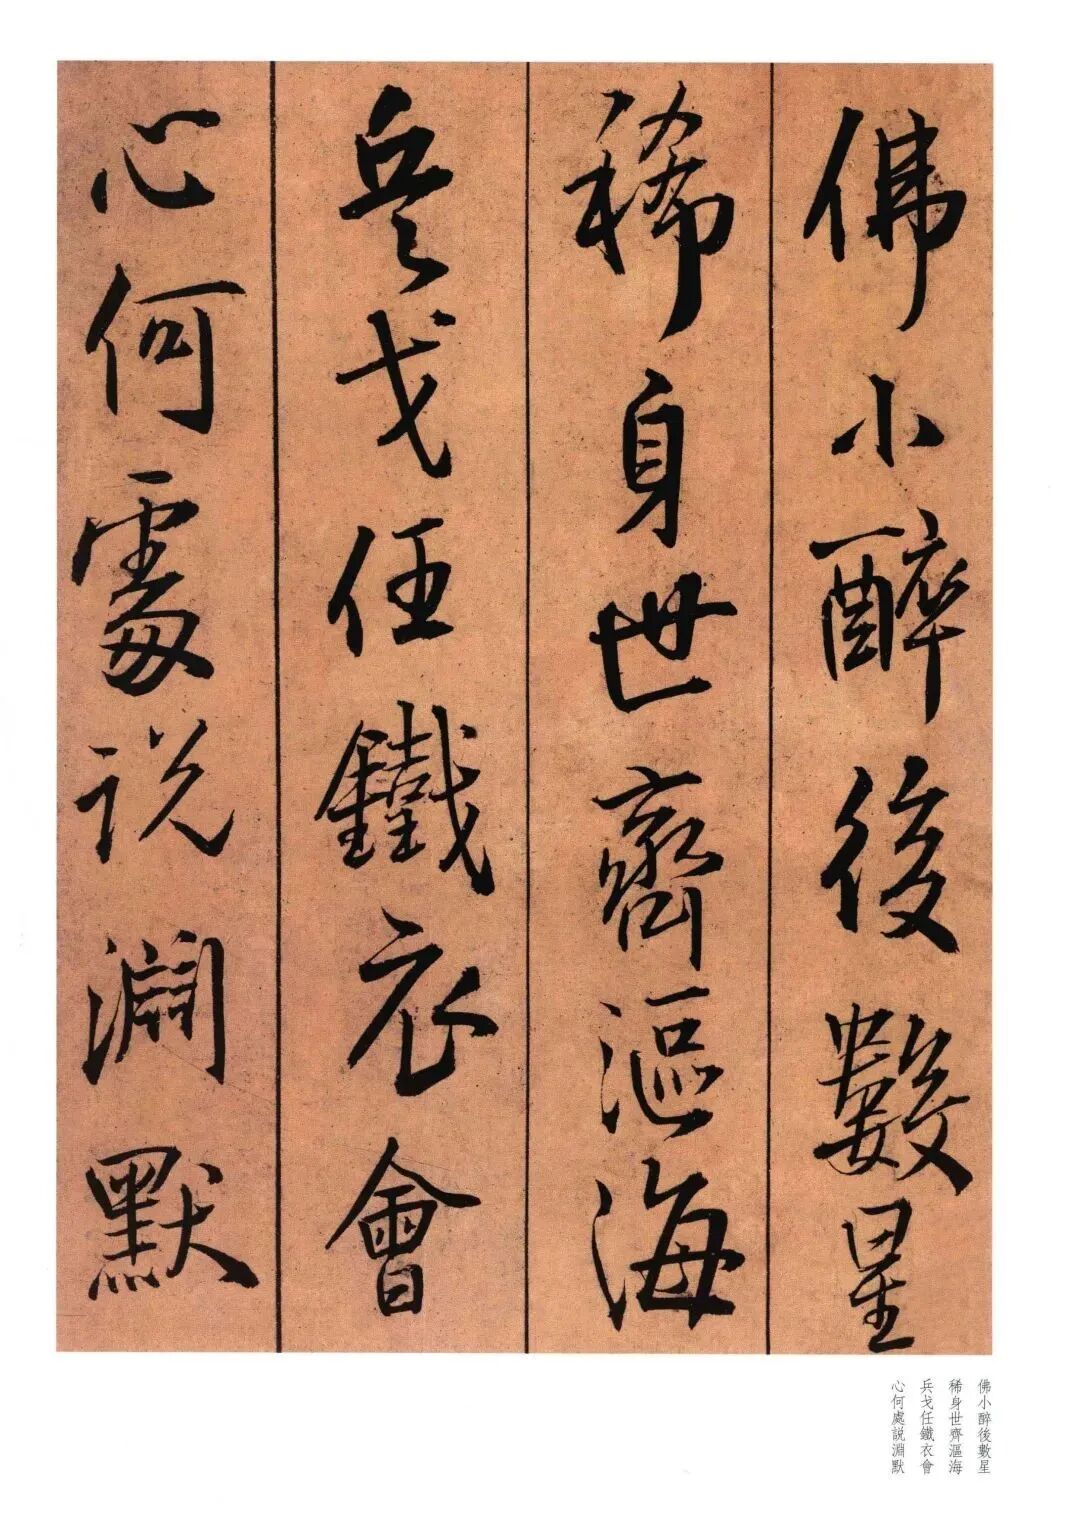 佛小醉後數星
稀身世齊漚海
兵戈任鐵衣會
心何處説淵默
佛小醉後數星
稀身世齊漚海
兵戈任鐵衣會
心何處説淵默